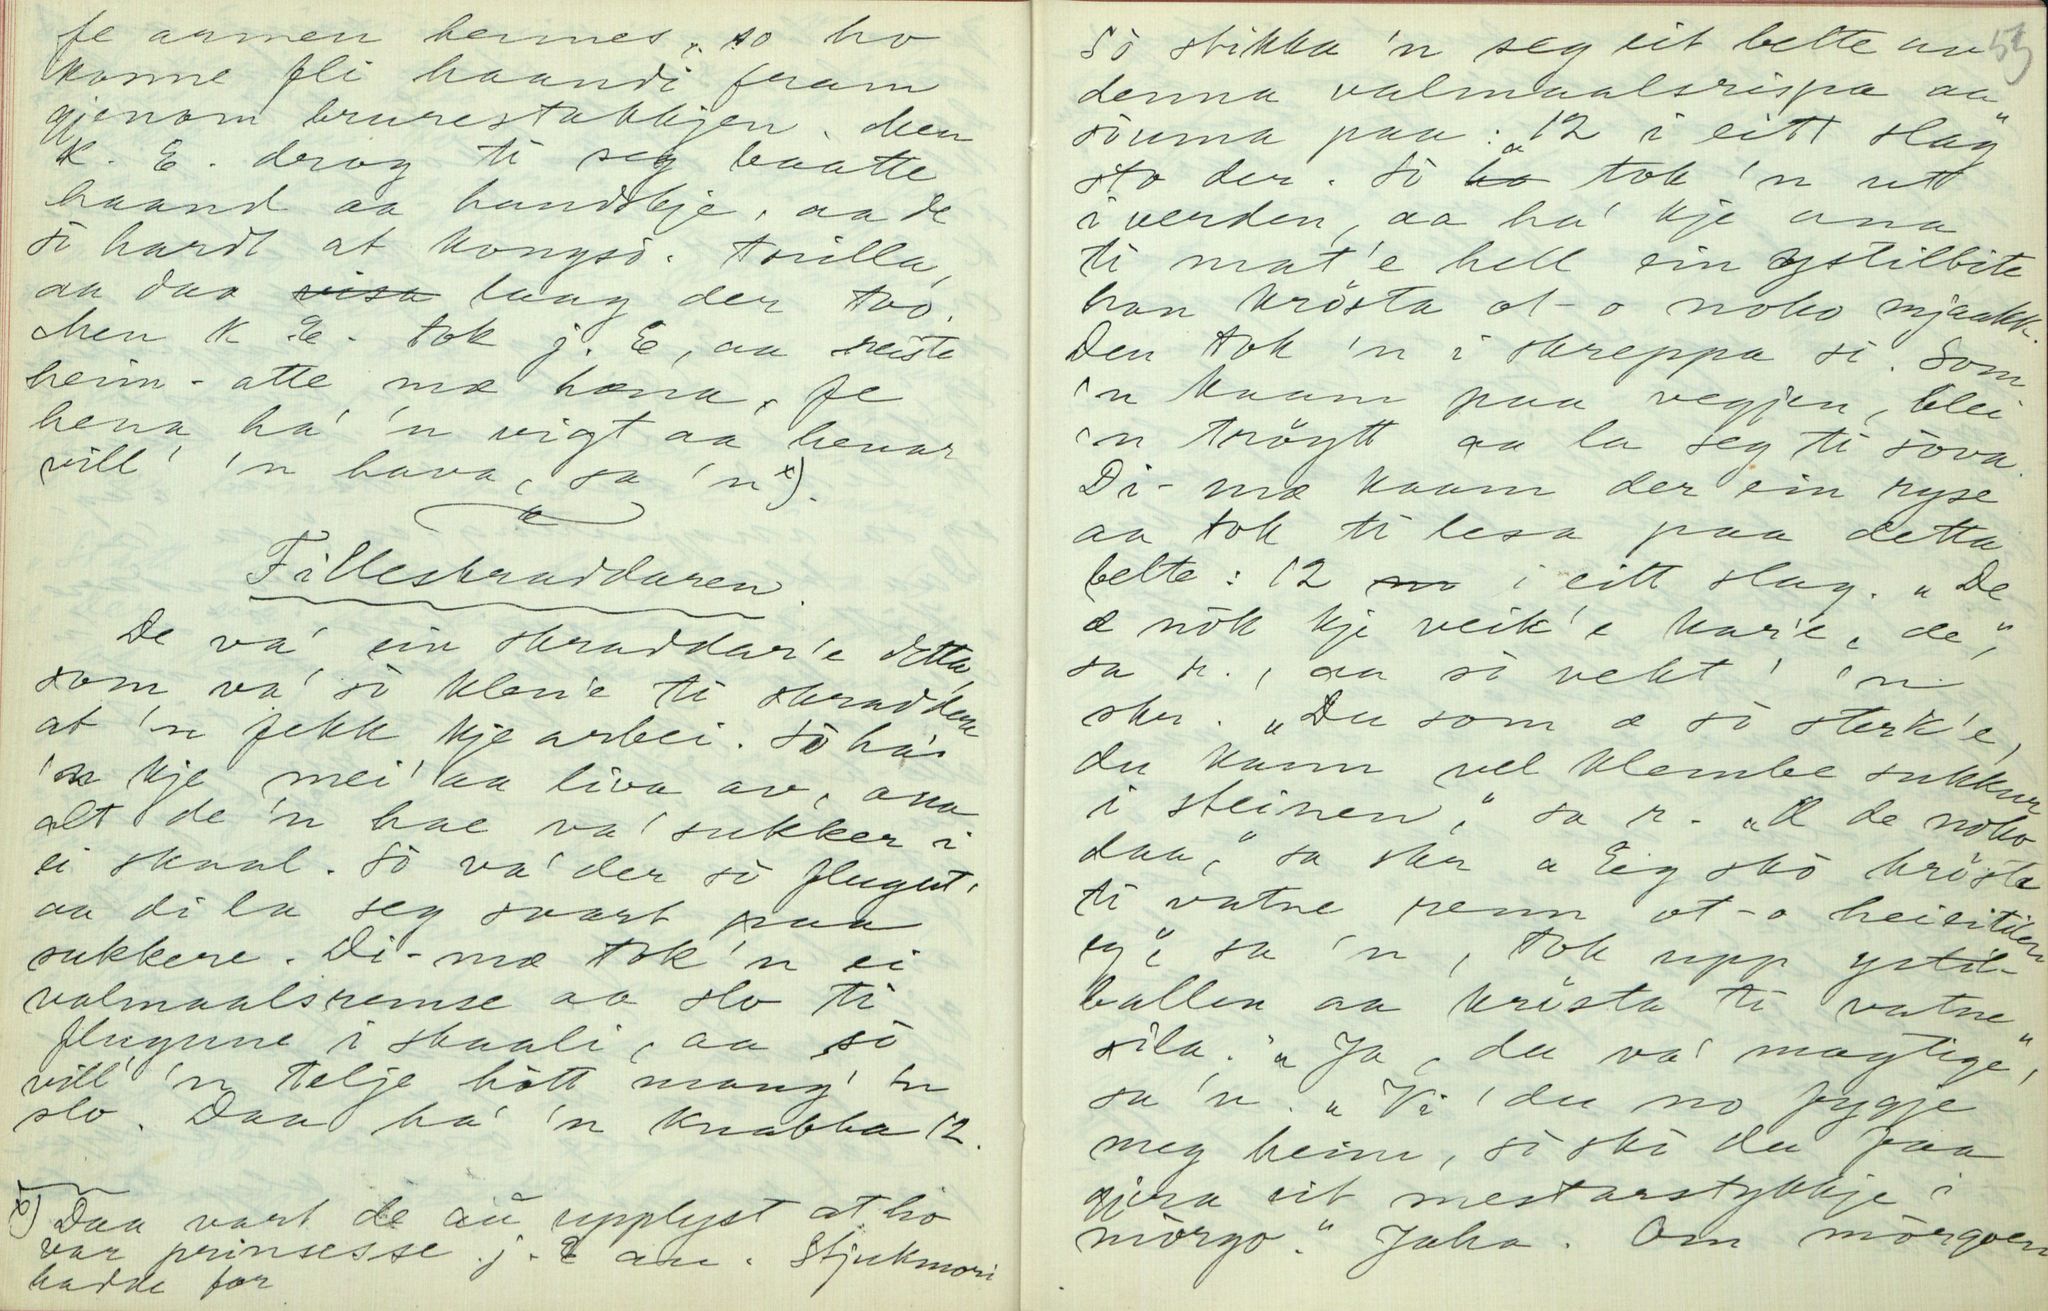 fe armen hennes, so ho
konne fli haandi fram
gjenom brurestakkjen. Men
K. E. drog ti seg baatte
haand aa handskje, aa de
sò hardt at kongsd. trilla,
aa daa visa laag der tvo.
Men K. E. tok j. E, aa reiste
heim-atte mæ hæna, fe
hena ha' 'n vigt aa henar
vill' 'n hava, sa 'n x).
Filleskraddaren.
De va' ein skraddar'e detta,
som va' sò klen'e ti skraddera
at 'n fekk kje arbei. Sò ha'
'n kje mei' aa liva av, ana
alt de 'n hae va' sukker i
ei skaal. Sò va' der sò flugut'
aa di la seg svart paa
sukkere. Di-mæ tok 'n ei
valmaalsremse aa slo ti
flugune i skaali, aa sò
vill' 'n telje hòtt mang' 'n
slo. Daa ha' 'n knabba 12.
x) Daa vart de au upplyst at ho
var prinsesse j. E aa. Stjukmori
hadde for
53
Sò stikka 'n seg eit belte av
denna valmaalsrispa aa
sòuma paa: "12 i eitt slag"
sto der. Sò ha tok 'n ut
i verden, aa ha' kje ana
ti mat'e hell ein ystilbite
han krösta ot-o noko mjaakk.
Den tok 'n i skreppa si. Som
'n kaam paa vegjen, blei
'n tröytt aa la seg ti sòva.
Di-mæ kaam der ein ryse
aa tok ti lesa paa detta
belte: 12 mo i eitt slag. "De
æ nòk kje veik'e kar'e, de",
sa r., aa sò vekt' 'n
skr. "Du som æ sò sterk'e,
du kann vel klembe sukkur
i steinen," sa r. "Æ de noko
daa," sa skr "Eig skò krösta
ti vatne renn ot-o heieitilen
eg", sa 'n, tok upp ystil-
ballen aa krösta ti vatne
sila. "Ja, du va' magtige",
sa 'n. "Vi' du no fygje
meg heim, sò ski du faa
gjera eit mestarstykkje i
mòrgo." Jaha. Om mòrgoen